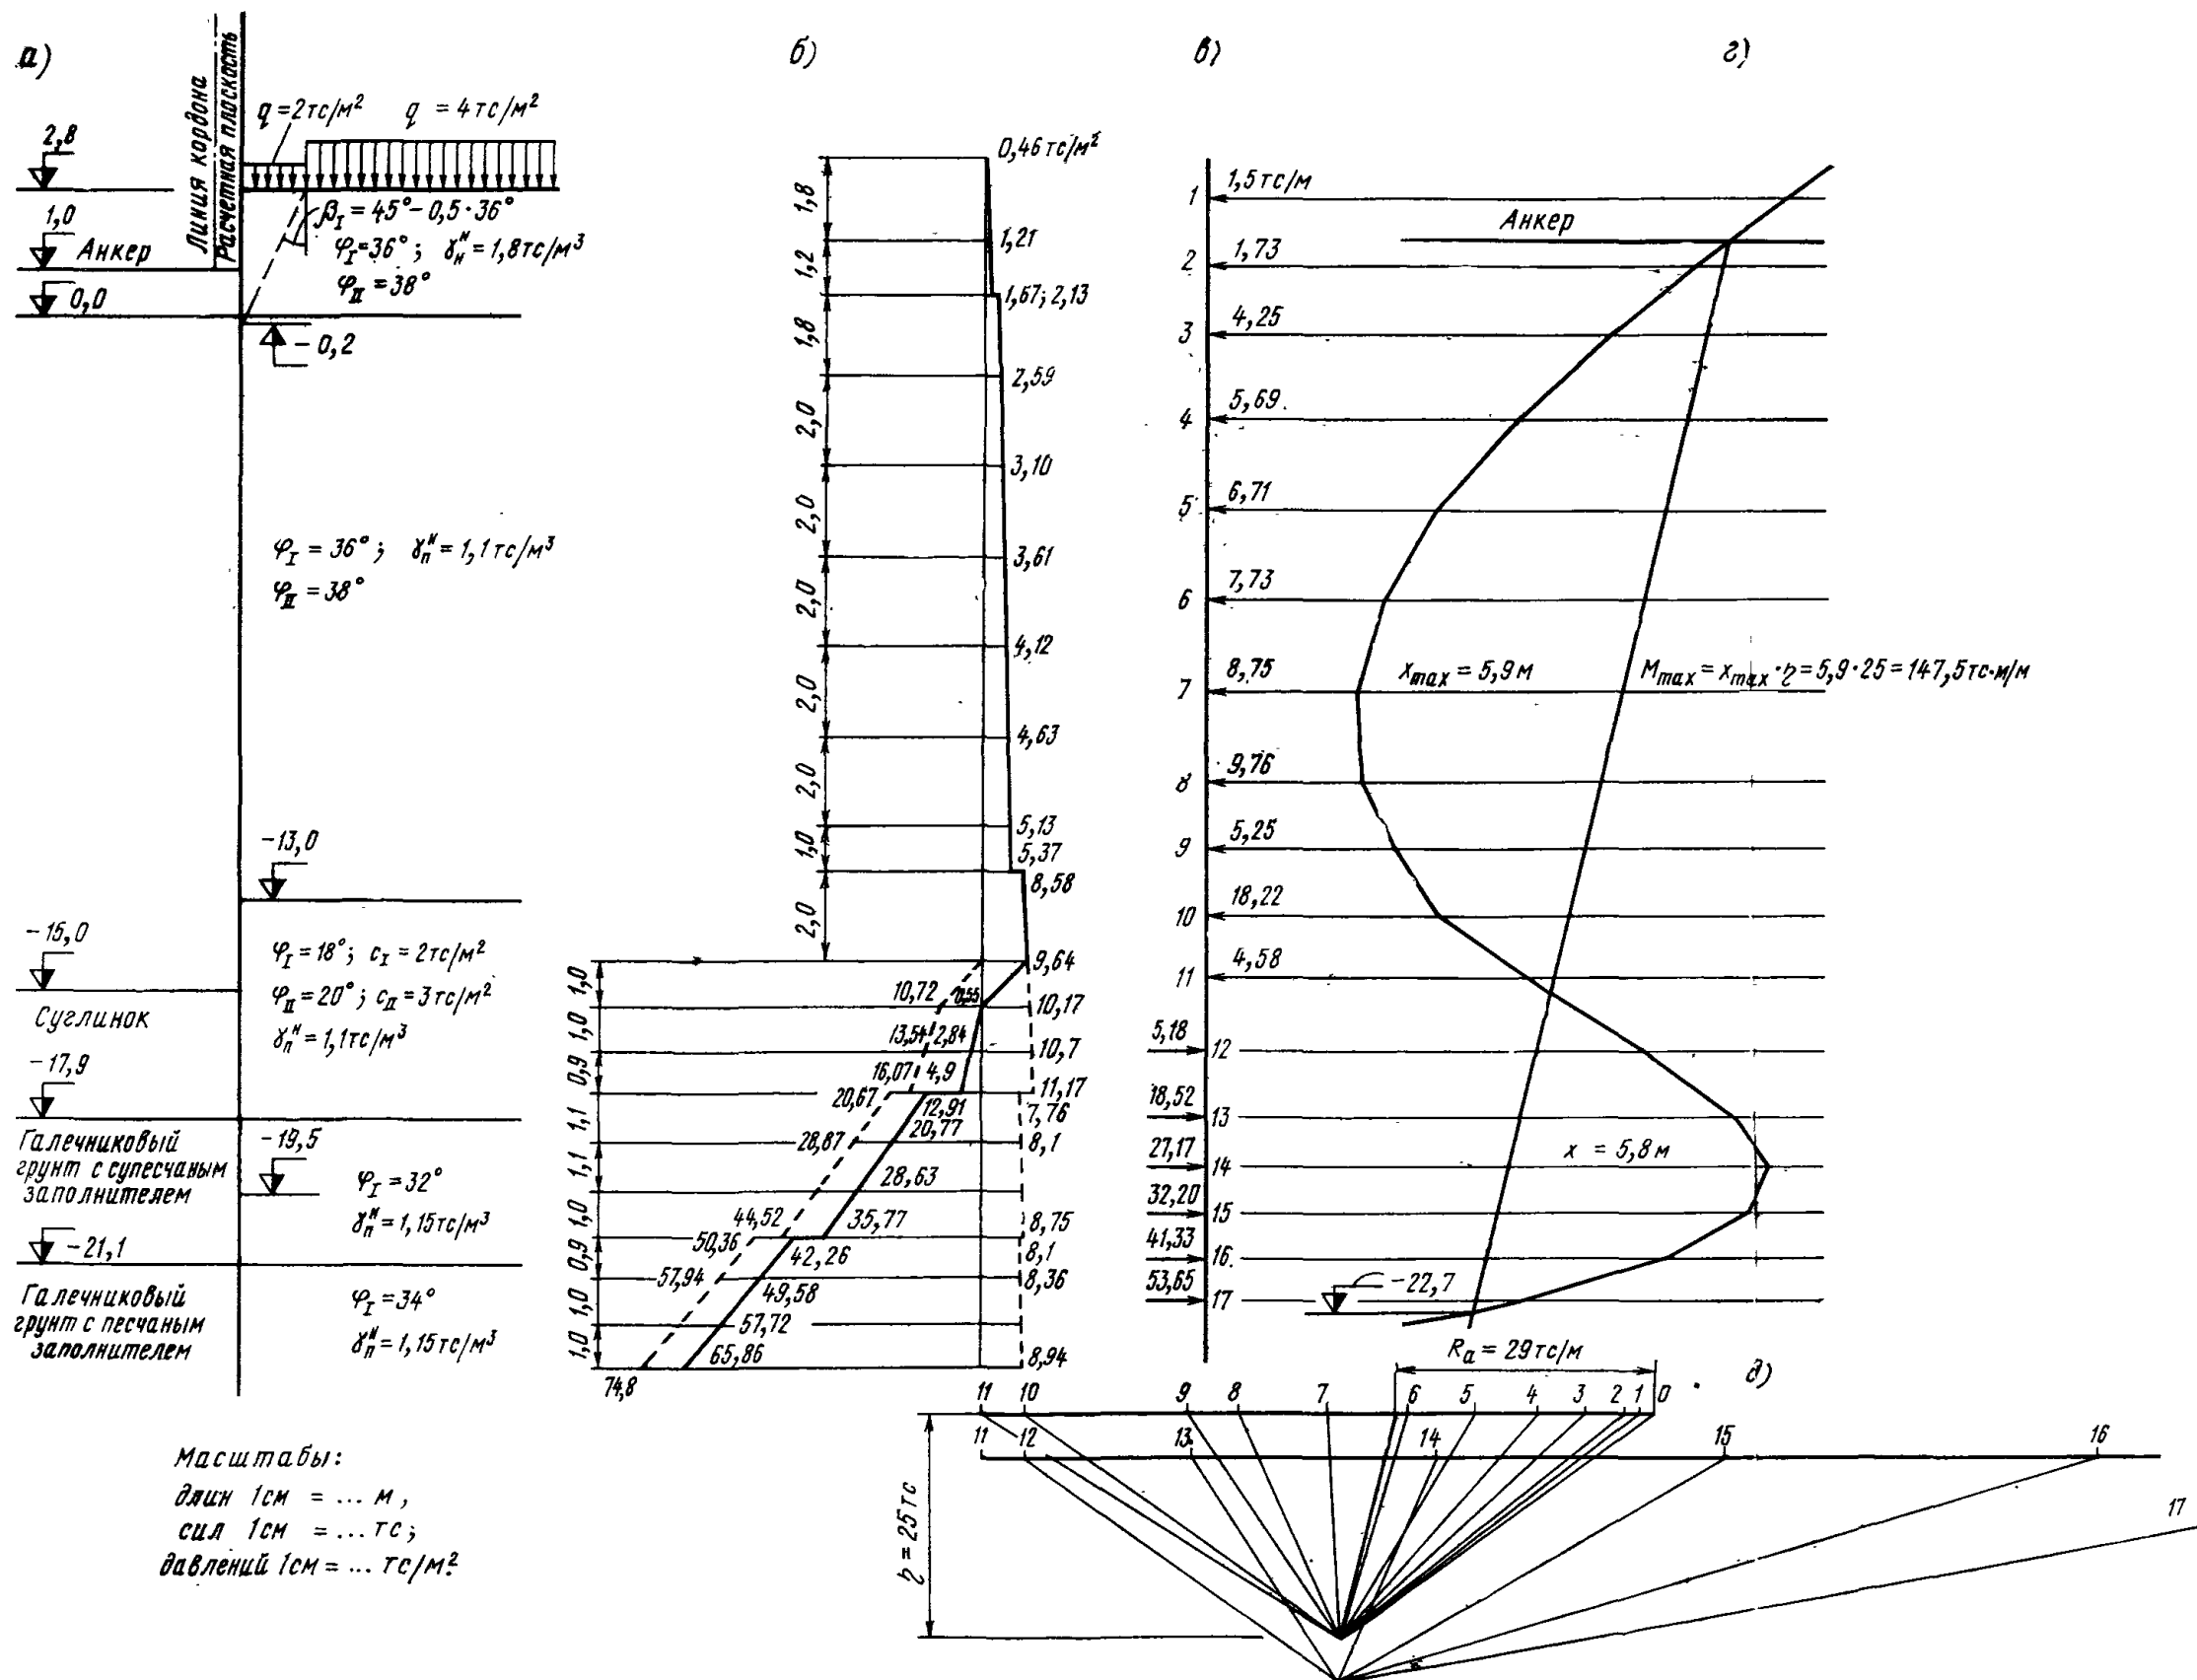 а)
б)
в)
г)
Линия кордона
Расчетная плоскость
q = 2 тс/м²
q = 4 тс/м²
2,8
1,0
Анкер
0,0
-0,2
β_I = 45° - 0,5·36°
φ_I = 36°; γ_н^н = 1,8 тс/м³
φ_II = 38°
φ_I = 36°; γ_п^н = 1,1 тс/м³
φ_II = 38°
-13,0
-15,0
φ_I = 18°; c_I = 2 тс/м²
φ_II = 20°; c_II = 3 тс/м²
γ_п^н = 1,1 тс/м³
Суглинок
-17,9
Галечниковый
грунт с супесчаным
заполнителем
-19,5
φ_I = 32°
γ_п^н = 1,15 тс/м³
-21,1
Галечниковый
грунт с песчаным
заполнителем
φ_I = 34°
γ_п^н = 1,15 тс/м³
Масштабы:
длин 1см = ... м,
сил 1см = ... тс;
давлений 1см = ... тс/м².
0,46 тс/м²
1,8
1,21
1,2
1,67; 2,13
1,8
2,59
2,0
3,10
2,0
3,61
2,0
4,12
2,0
4,63
2,0
5,13
1,0
5,37
8,58
2,0
9,64
1,0
10,72
0,55
10,17
1,0
13,54
2,84
10,7
0,9
16,07
4,9
11,17
20,67
12,91
7,76
1,1
28,87
20,77
8,1
1,1
28,63
1,0
44,52
35,77
8,75
50,36
42,26
8,1
0,9
57,94
49,58
8,36
1,0
57,72
1,0
65,86
8,94
74,8
1
1,5 тс/м
Анкер
2
1,73
3
4,25
4
5,69
5
6,71
6
7,73
7
8,75
x_max = 5,9 м
M_max = x_max · η = 5,9 · 25 = 147,5 тс·м/м
8
9,76
9
5,25
10
18,22
11
4,58
5,18
12
18,52
13
27,17
14
x = 5,8 м
32,20
15
41,33
16
53,65
17
-22,7
R_a = 29 тс/м
д)
11 10 9 8 7 6 5 4 3 2 1 0
11 12 13 14 15 16
17
η = 25 тс